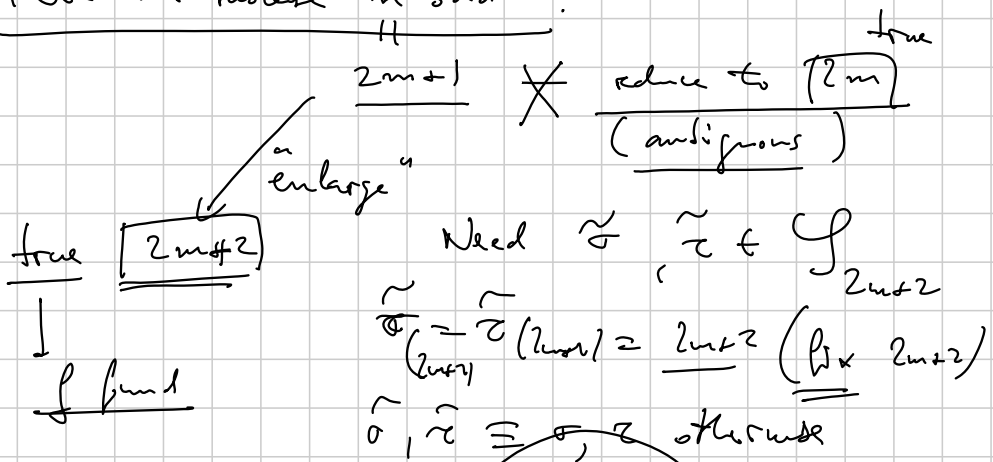 true
2m+1 reduce to 2m
(ambiguous)
"enlarge"
true 2m+2 Need σ̃, τ̃ ∈ 𝒮_{2m+2}
σ̃(2m+2) = τ̃(2m+2) = 2m+2 (fix 2m+2)
f found
σ̃, τ̃ ≡ σ, τ otherwise